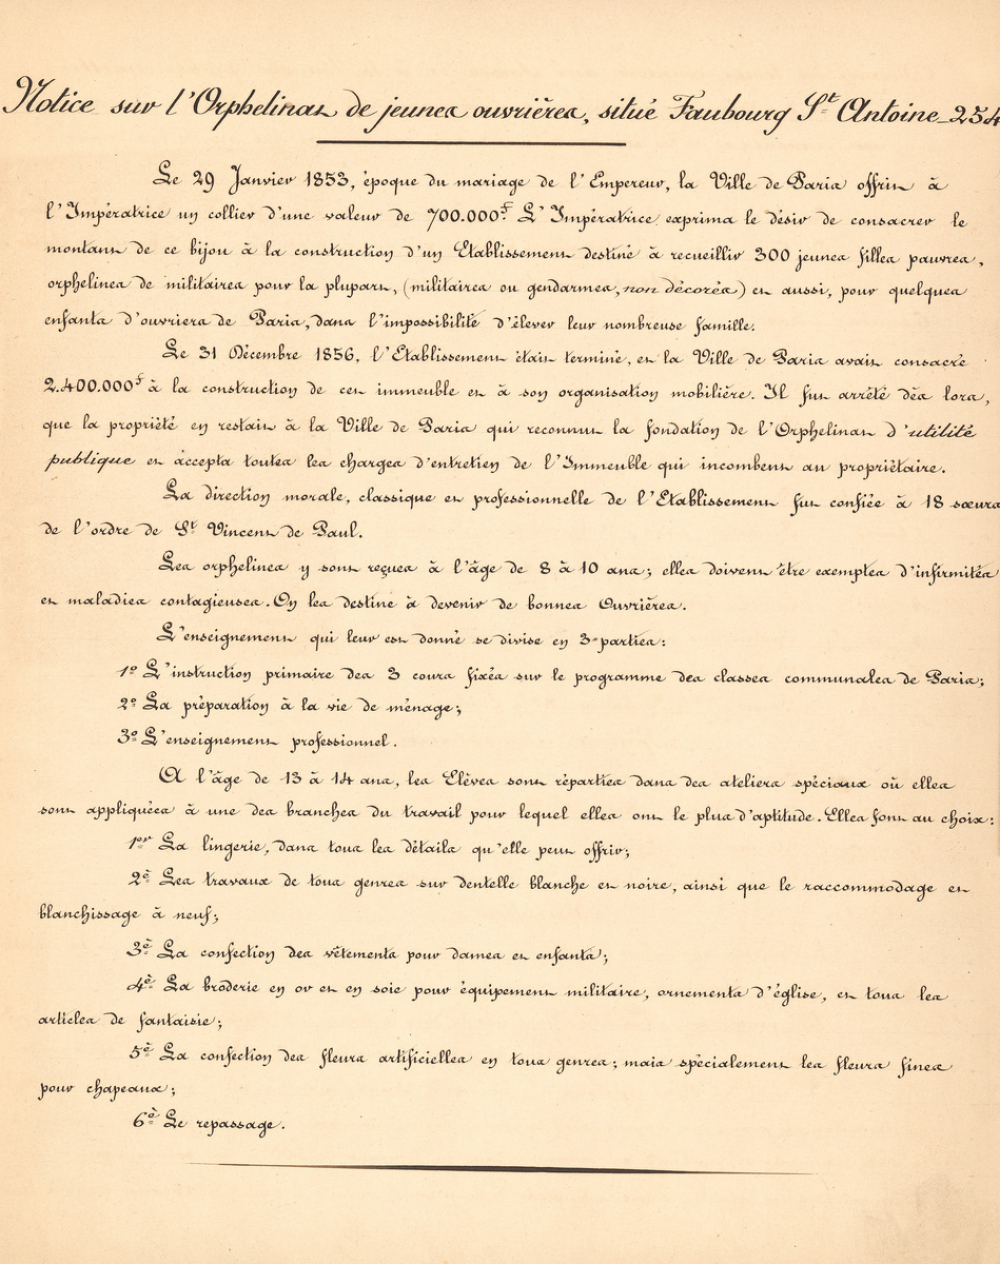 Notice sur l'Orphelinat de jeunes ouvrières, situé Faubourg St Antoine_254
Le 29 Janvier 1853, époque du mariage de l'Empereur, la Ville de Paris offrit à
l'Impératrice un collier d'une valeur de 700.000f. L'Impératrice exprima le désir de consacrer le
montant de ce bijou à la construction d'un Etablissement destiné à recueillir 300 jeunes filles pauvres,
orphelines de militaires pour la plupart, (militaires ou gendarmes, non décorés) et aussi, pour quelques
enfants d'ouvriers de Paris, dans l'impossibilité d'élever leur nombreuse famille.
Le 31 Décembre 1856, l'Etablissement était terminé, et la Ville de Paris avait consacré
2.400.000f à la construction de cet immeuble et à son organisation mobilière. Il fut arrêté dès lors,
que la propriété en restait à la Ville de Paris qui reconnut la fondation de l'Orphelinat d'utilité
publique et accepta toutes les charges d'entretien de l'Immeuble qui incombent au propriétaire.
La direction morale, classique et professionnelle de l'Etablissement fut confiée à 18 sœurs
de l'ordre de St Vincent de Paul.
Les orphelines y sont reçues à l'âge de 8 à 10 ans; elles doivent être exemptes d'infirmités
et maladies contagieuses. On les destine à devenir de bonnes Ouvrières.
L'enseignement qui leur est donné se divise en 3 parties:
1º L'instruction primaire des 3 cours fixés sur le programme des classes communales de Paris;
2º La préparation à la vie de ménage;
3º L'enseignement professionnel.
A l'âge de 13 à 14 ans, les Elèves sont réparties dans des ateliers spéciaux où elles
sont appliquées à une des branches du travail pour lequel elles ont le plus d'aptitude. Elles font au choix:
1er La lingerie, dans tous les détails qu'elle peut offrir;
2è Les travaux de tous genres sur dentelle blanche et noire, ainsi que le raccommodage et
blanchissage à neuf;
3è La confection des vêtements pour dames et enfants;
4è La broderie en or et en soie pour équipement militaire, ornements d'église, et tous les
articles de fantaisie;
5è La confection des fleurs artificielles en tous genres; mais spécialement les fleurs fines
pour chapeaux;
6è Le repassage.